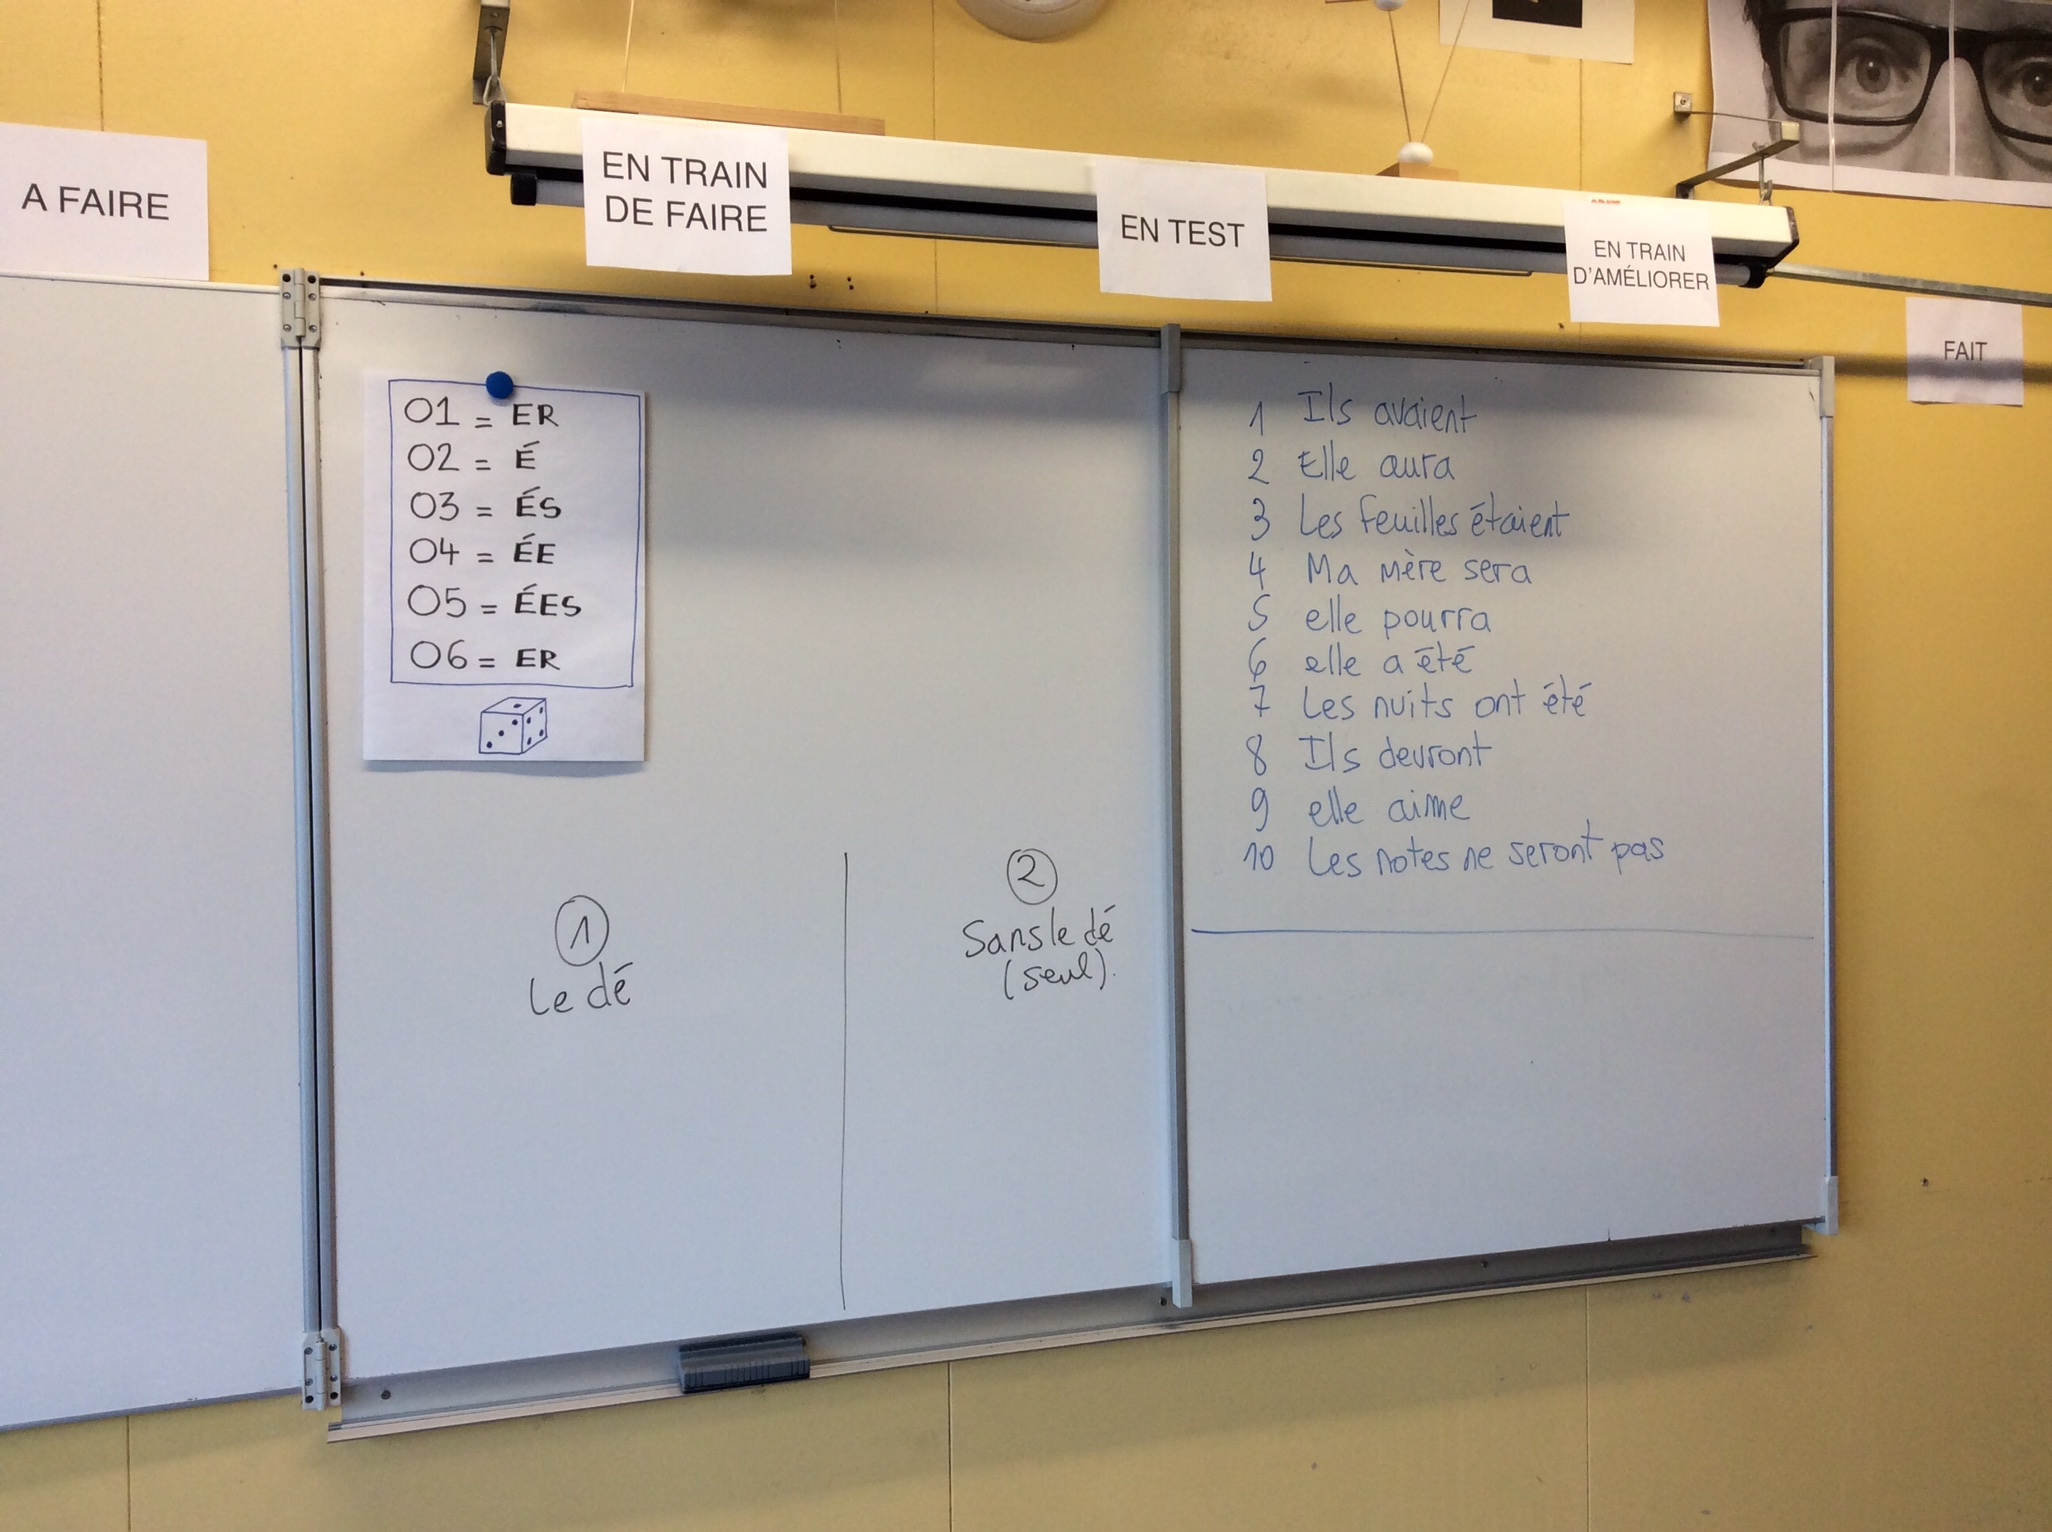 A FAIRE
EN TRAIN
DE FAIRE
EN TEST
EN TRAIN
D'AMÉLIORER
FAIT
O1 = ER
O2 = É
O3 = ÉS
O4 = ÉE
O5 = ÉES
O6 = ER
1
Le dé
2
Sans le dé
(seul).
1 Ils avaient
2 Elle aura
3 Les feuilles étaient
4 Ma mère sera
5 elle pourra
6 elle a été
7 Les nuits ont été
8 Ils devront
9 elle aime
10 Les notes ne seront pas